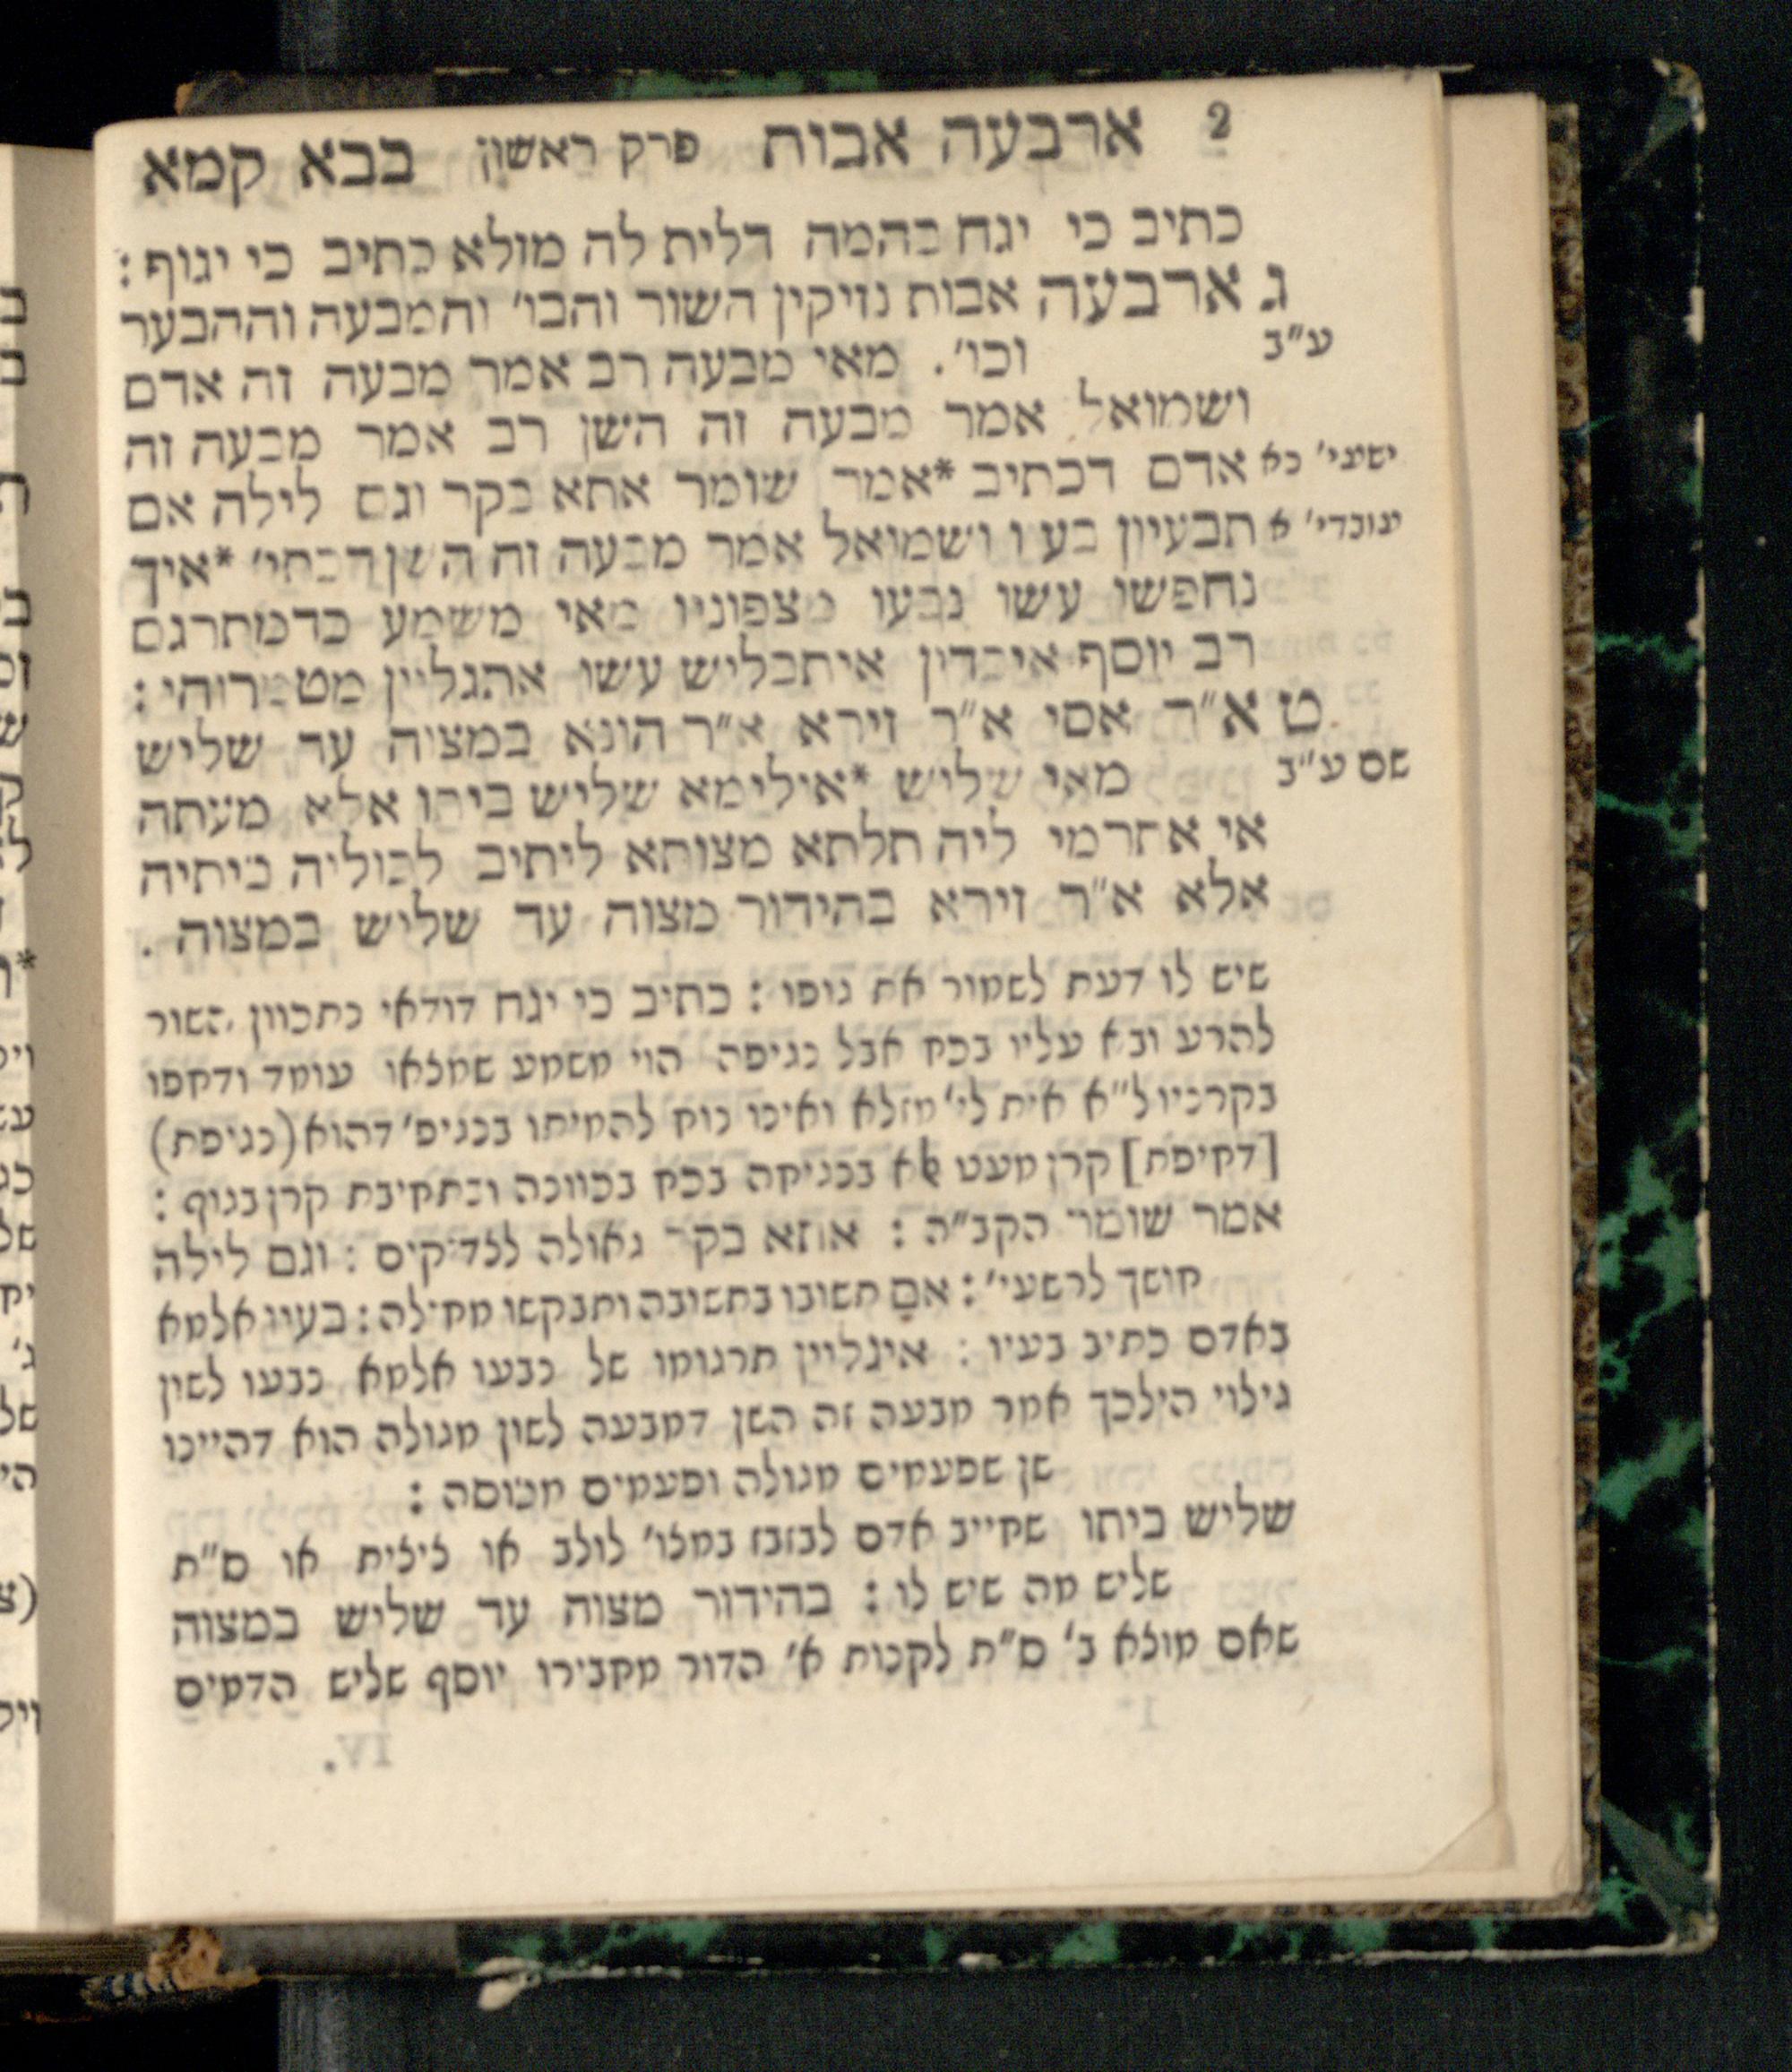 2 ארבעה אבות פרק ראשון בבא קמא
כתיב כי יגח בהמה דלית לה מזלא כתיב כי יגוף :
ג ארבעה אבות נזיקין השור והבו׳ והמבעה וההבער
ע״ב וכו׳ . מאי מבעה רב אמר מבעה זה אדם
ושמואל אמר מבעה זה השן רב אמר מבעה זה
ישעי׳ כא אדם דכתיב *אמר שומר אתא בקר וגם לילה אם
עובדי׳ א תבעיון בעיו ושמואל אמר מבעה זה השן דכתי׳ *איך
נחפשו עשו נבעו מצפוניו מאי משמע כדמתרגם
רב יוסף איכדין איתבליש עשו אתגליין מטמרוהי :
ט א״ר אסי א״ר זירא א״ר הונא במצוה עד שליש
שם ע״ב מאי שליש *אילימא שליש ביתו אלא מעתה
אי אתרמי ליה תלתא מצותא ליתיב לכוליה ביתיה
אלא א״ר זירא בהידור מצוה עד שליש במצוה .
שיש לו דעת לשמור את גופו : כתיב כי יגח דודאי כתכוון השור
להרע ובא עליו בכח אבל נגיפה הוי משמע שמצאו עומד ודחפו
בקרניו ל״א אית לי׳ מזלא ואינו נוח להמיתו בנגיפ׳ דהוא (נגיפת)
[דחיפת] קרן מעט אלא בנגיחה בכח בכוונה ובתחיבת קרן בגוף :
אמר שומר הקב״ה : אתא בקר גאולה לצדיקים : וגם לילה
חושך לרשעי׳ : אם תשובו בתשובה ותבקשו מחילה : בעיו אלמא
באדם כתיב בעיו : איגליין תרגומו של נבעו אלמא נבעו לשון
גילוי הילכך אמר מבעה זה השן דמבעה לשון מגולה הוא דהיינו
שן שפעמים מגולה ופעמים מכוסה :
שליש ביתו שחייב אדם לבזבז במצו׳ לולב או ציצית או ס״ת
שליש מה שיש לו : בהידור מצוה עד שליש במצוה
שאם מוצא ב׳ ס״ת לקנות א׳ הדור מחבירו יוסף שליש הדמים